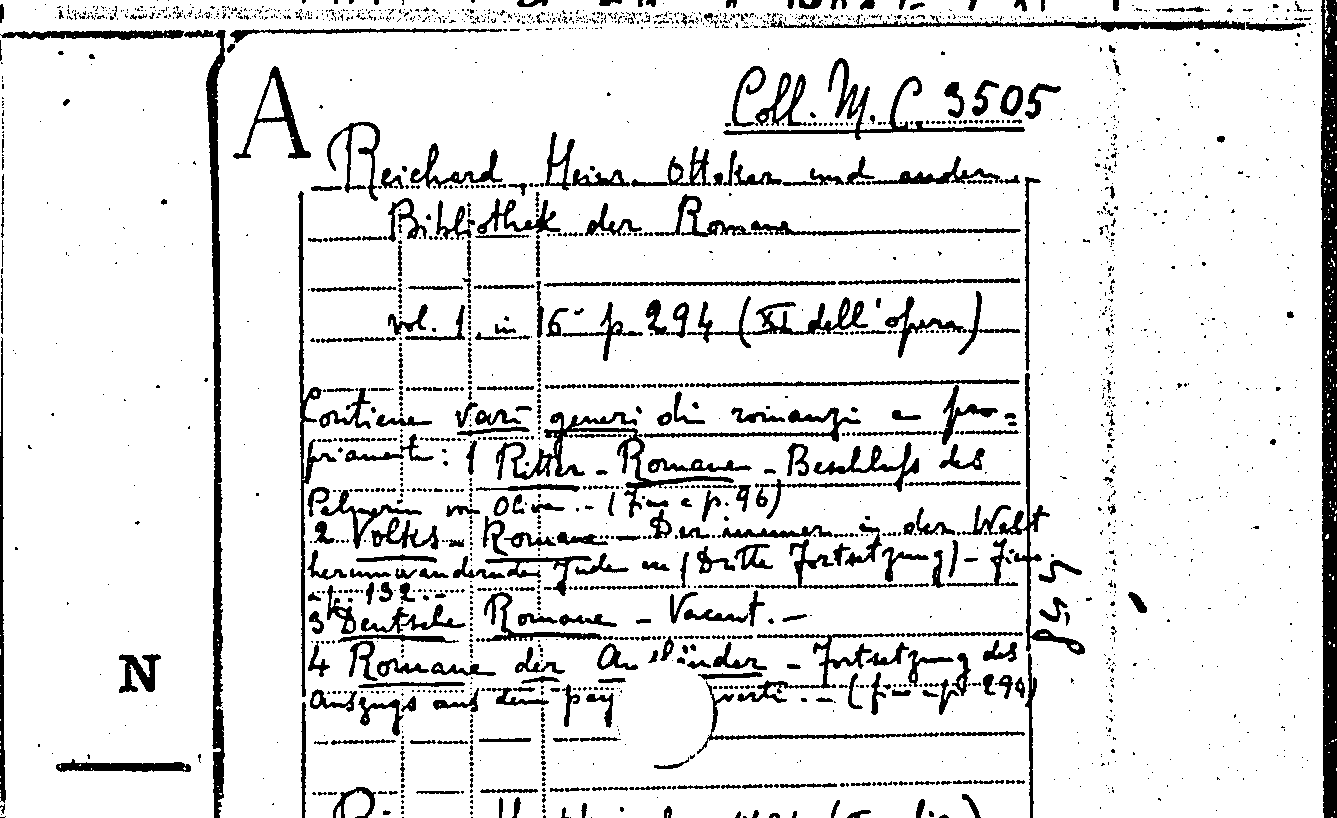 A
Coll. M. C. 3505
Reichard, Heinr. Ottokar und andern.
Bibliothek der Romane
vol. 1. in 16° p. 294 (XI dell'opera)
Contiene vari generi di romanzi e pro=
priamente: 1 Ritter - Romane - Beschluss des
Palmerin von Oliva. - (Fino a p. 96)
2 Volks - Romane - Der immer in der Welt
herumwandernde Jude (Dritte Fortsetzung) - Fino
a p. 132. -
3 Deutsche Romane - Vacant. -
4 Romane der Ausländer - Fortsetzung des
Auszugs aus dem pay verti. - (fino a p. 294)
558
N